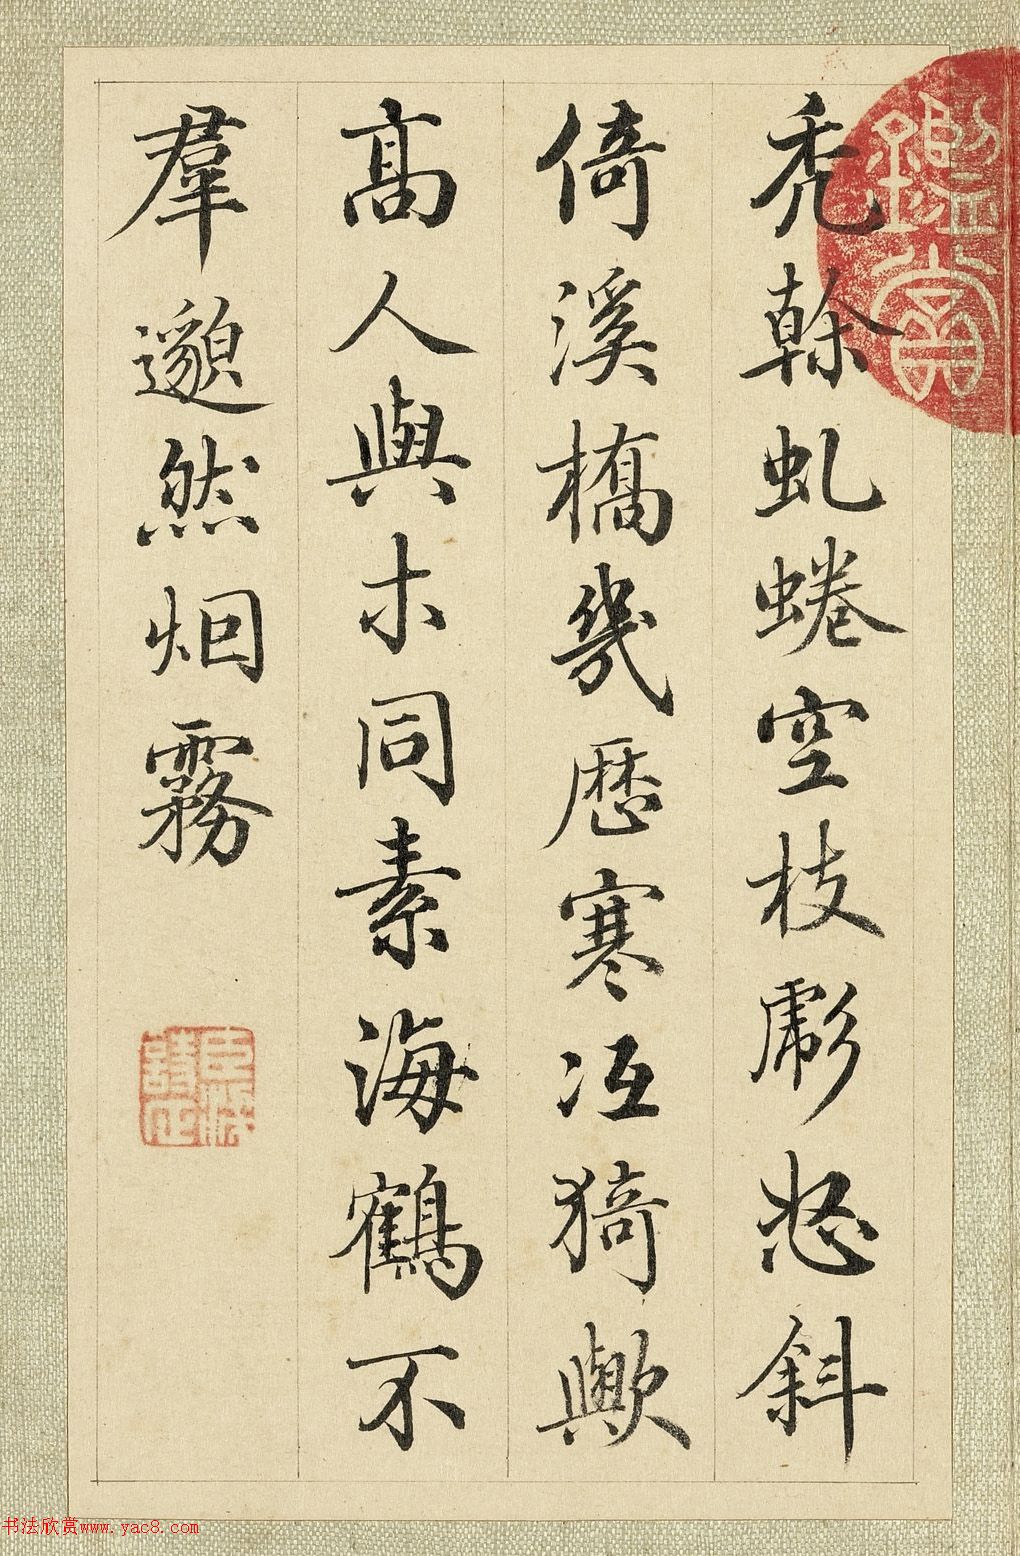 禿榦虬蜷空枝彪怒斜
倚溪橋幾歷寒冱猗歟
高人與木同素海鶴不
羣邈然烟霧
鑑賞
书法欣赏www.yac8.com